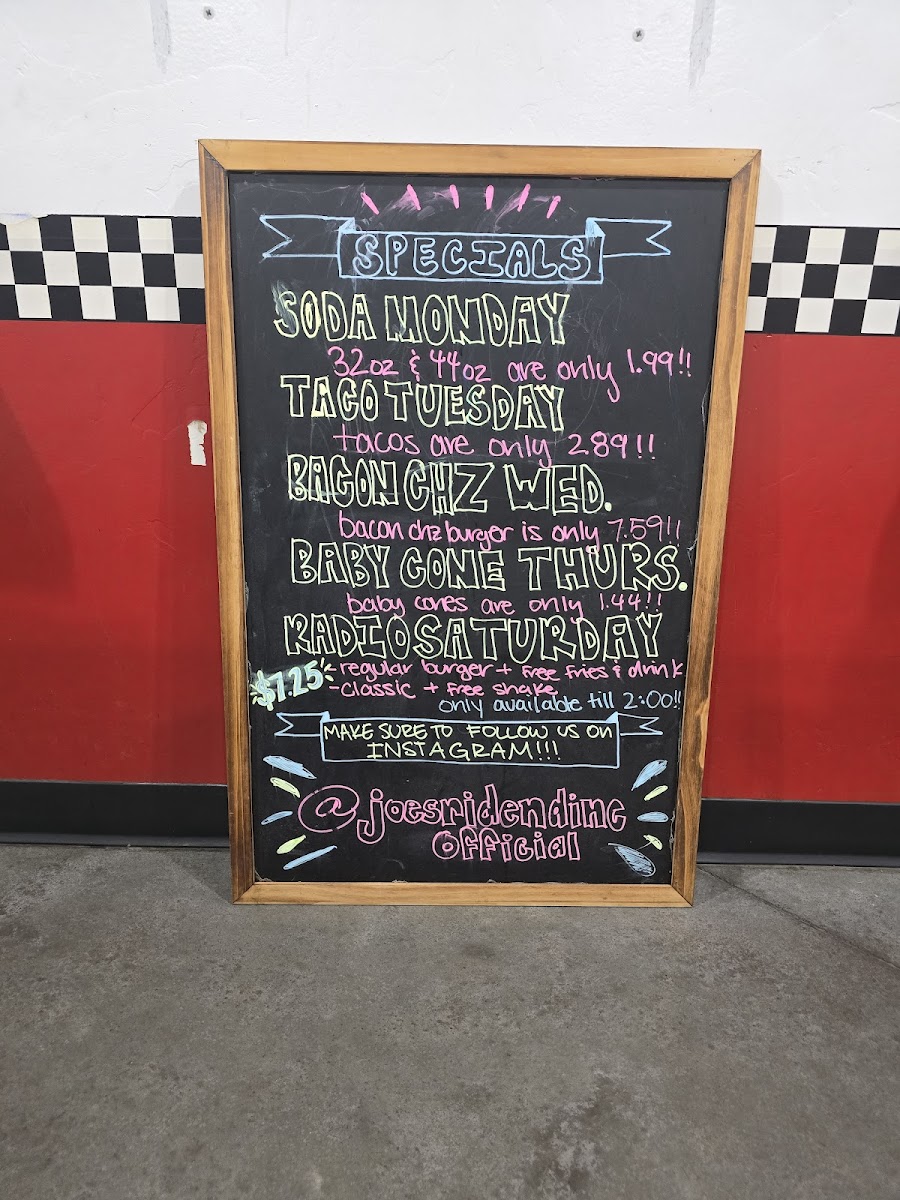 SPECIALS
SODA MONDAY
32oz & 44oz are only 1.99!!
TACO TUESDAY
tacos are only 2.89!!
BACON CHZ WED.
bacon chz burger is only 7.59!!
BABY CONE THURS.
baby cones are only 1.44!!
RADIO SATURDAY
$7.25 -regular burger + free fries & drink
-classic + free shake
only available till 2:00!!
MAKE SURE TO FOLLOW US ON
INSTAGRAM!!!
@joesridendine
official